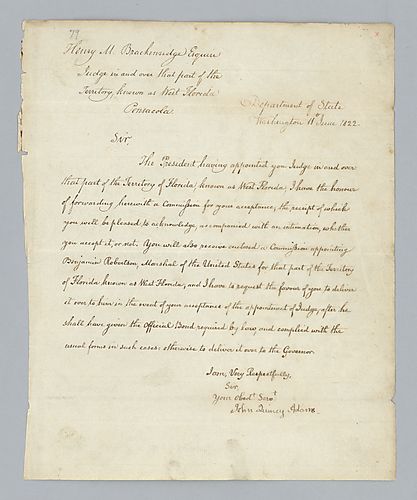 79
Henry M. Brackenridge Esquire
Judge in and over that part of the
Territory, known as West Florida
Pensacola.
Department of State
Washington 11th June 1822.
Sir.
The President having appointed you Judge in and over
that part of the Territory of Florida, known as West Florida, I have the honour
of forwarding herewith a Commission for your acceptance, the receipt of which
you will be pleased to acknowledge, accompanied with an intimation, whether
you accept it, or not. You will also receive enclosed a Commission appointing
Benjamin Robertson, Marshal of the United States for that part of the Territory
of Florida known as West Florida; and I have to request the favour of you to deliver
it over to him in the event of your acceptance of the appointment of Judge, after he
shall have given the Official Bond required by Law, and complied with the
usual forms in such cases: otherwise to deliver it over to the Governor.
I am, Very Respectfully,
Sir.
Your Obedt. Servt.
John Quincy Adams